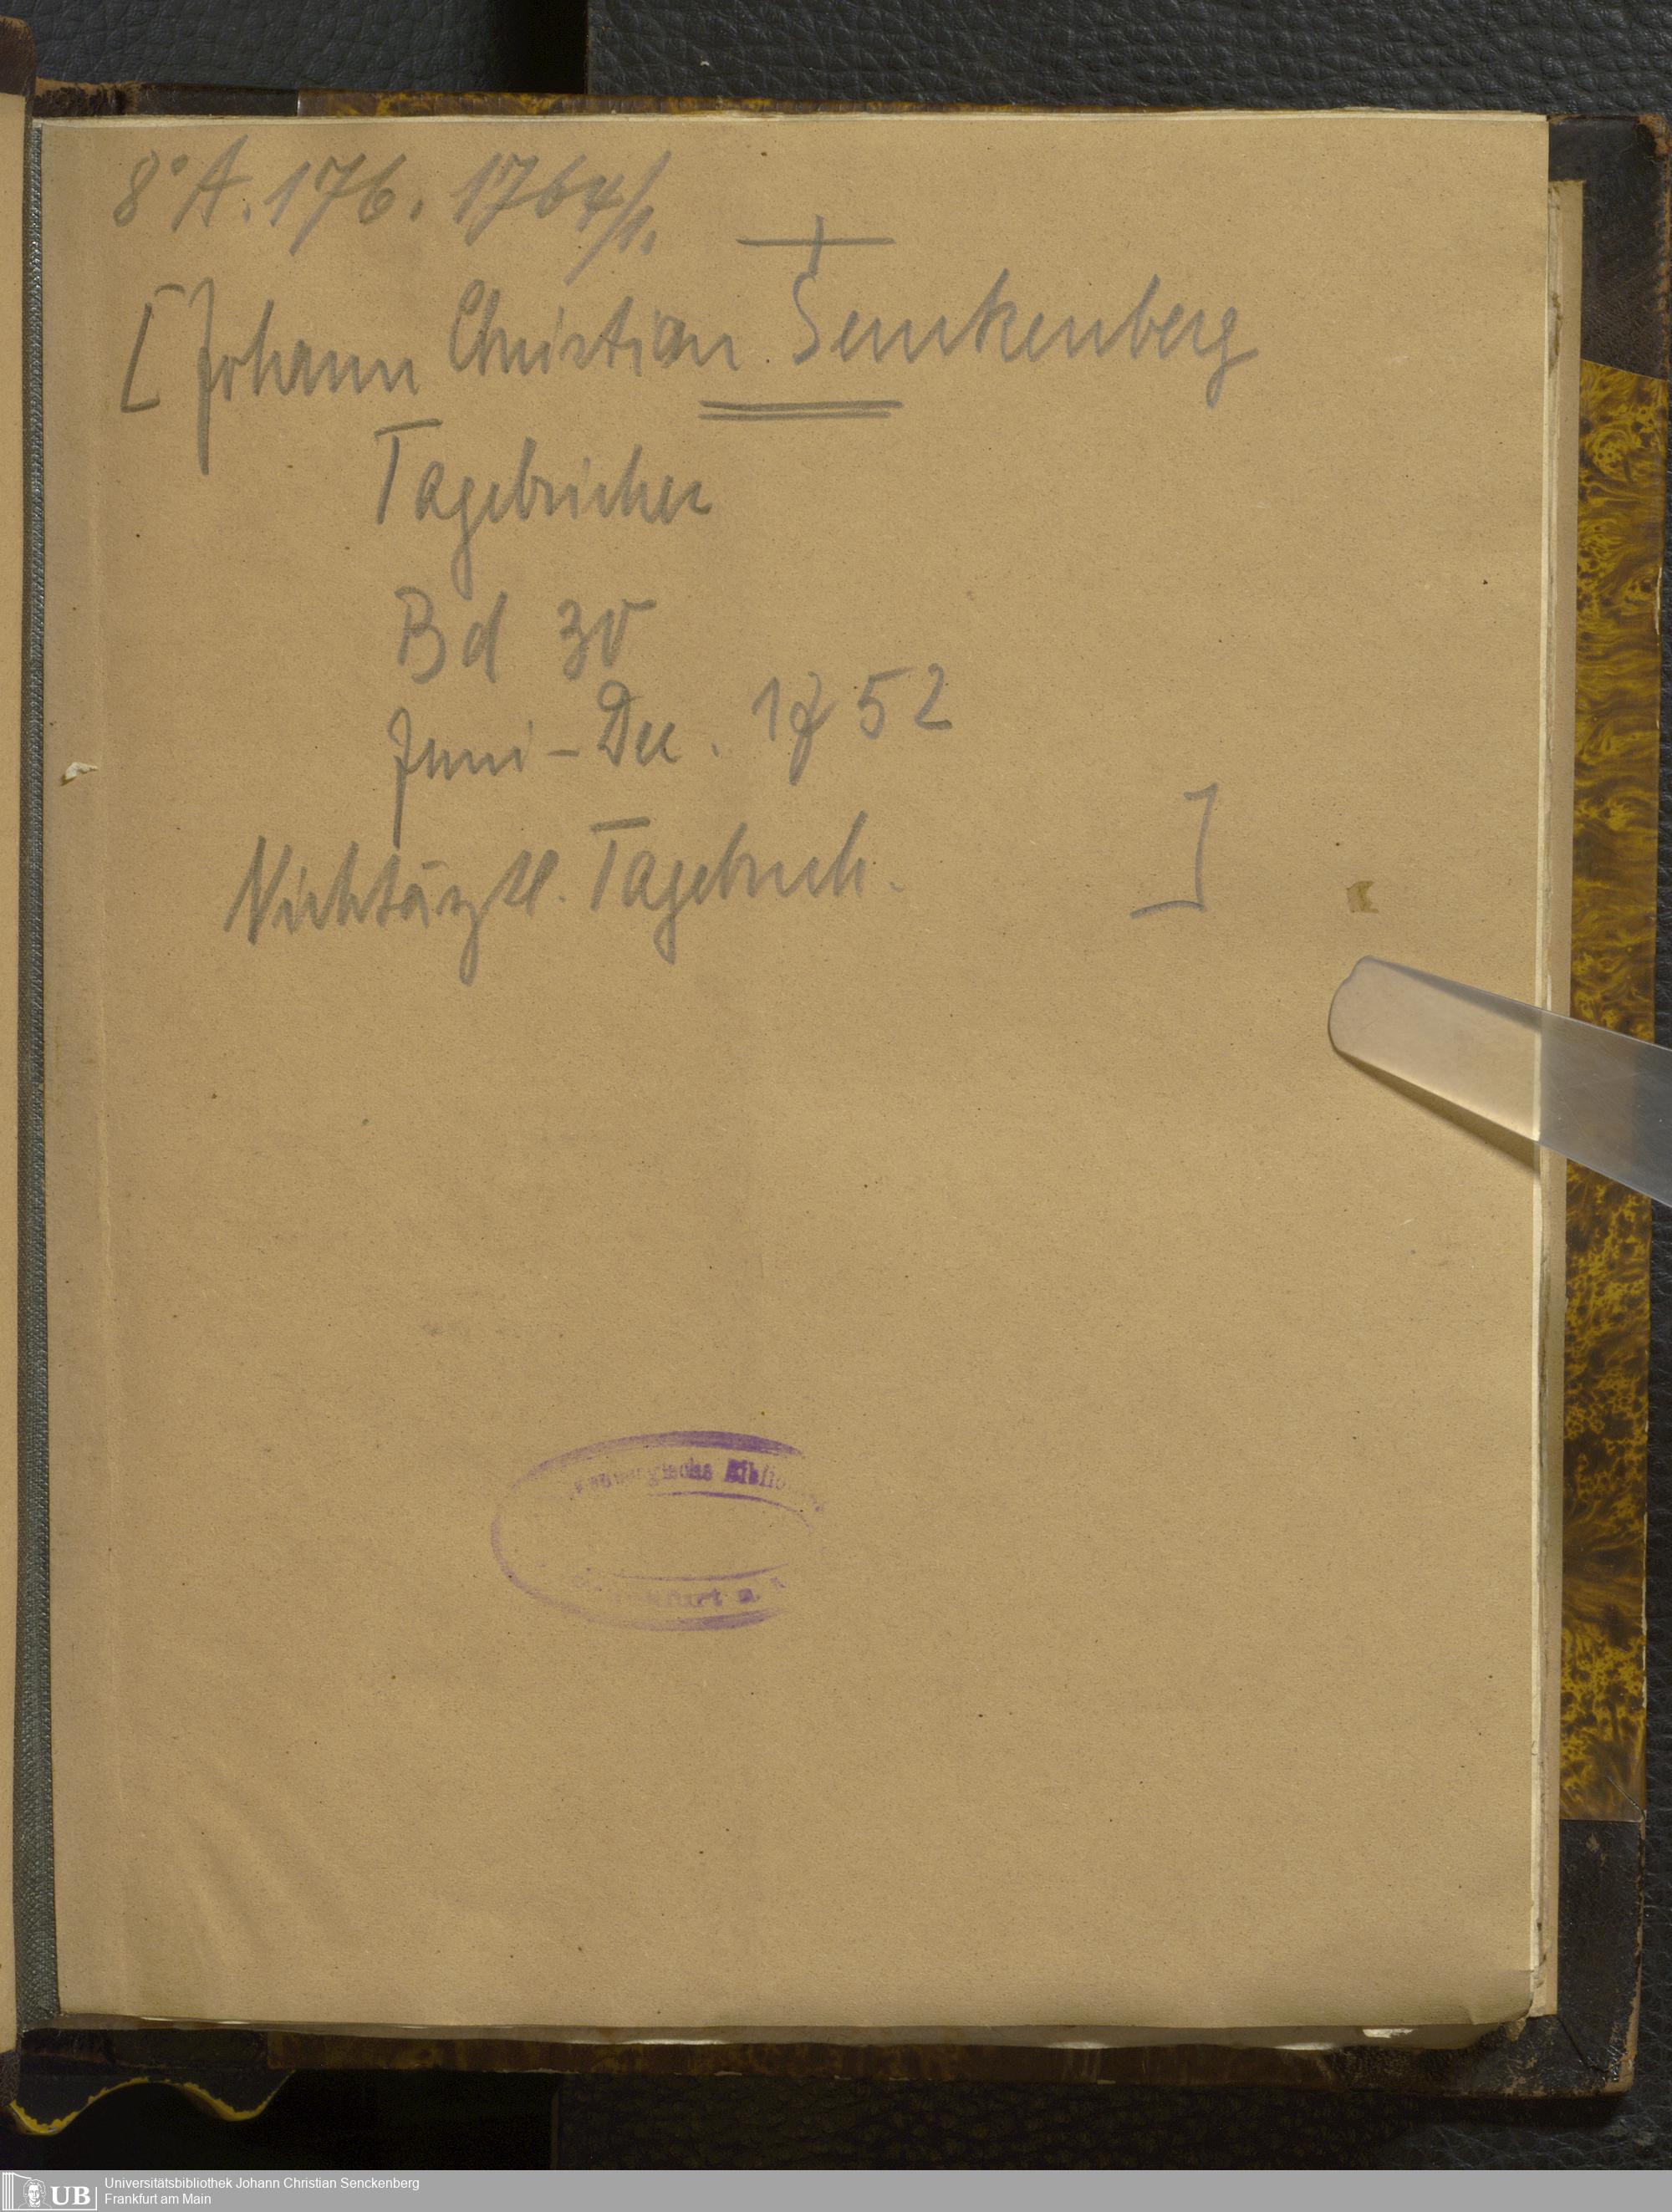 8° A. 176. 1764/1.
[Johann Christian Senckenberg
Tagebücher
Bd 30
Juni - Dec. 1752
Nichtärztl. Tagebuch. ]
Bibliothek
Universitätsbibliothek Johann Christian Senckenberg
UB Frankfurt am Main